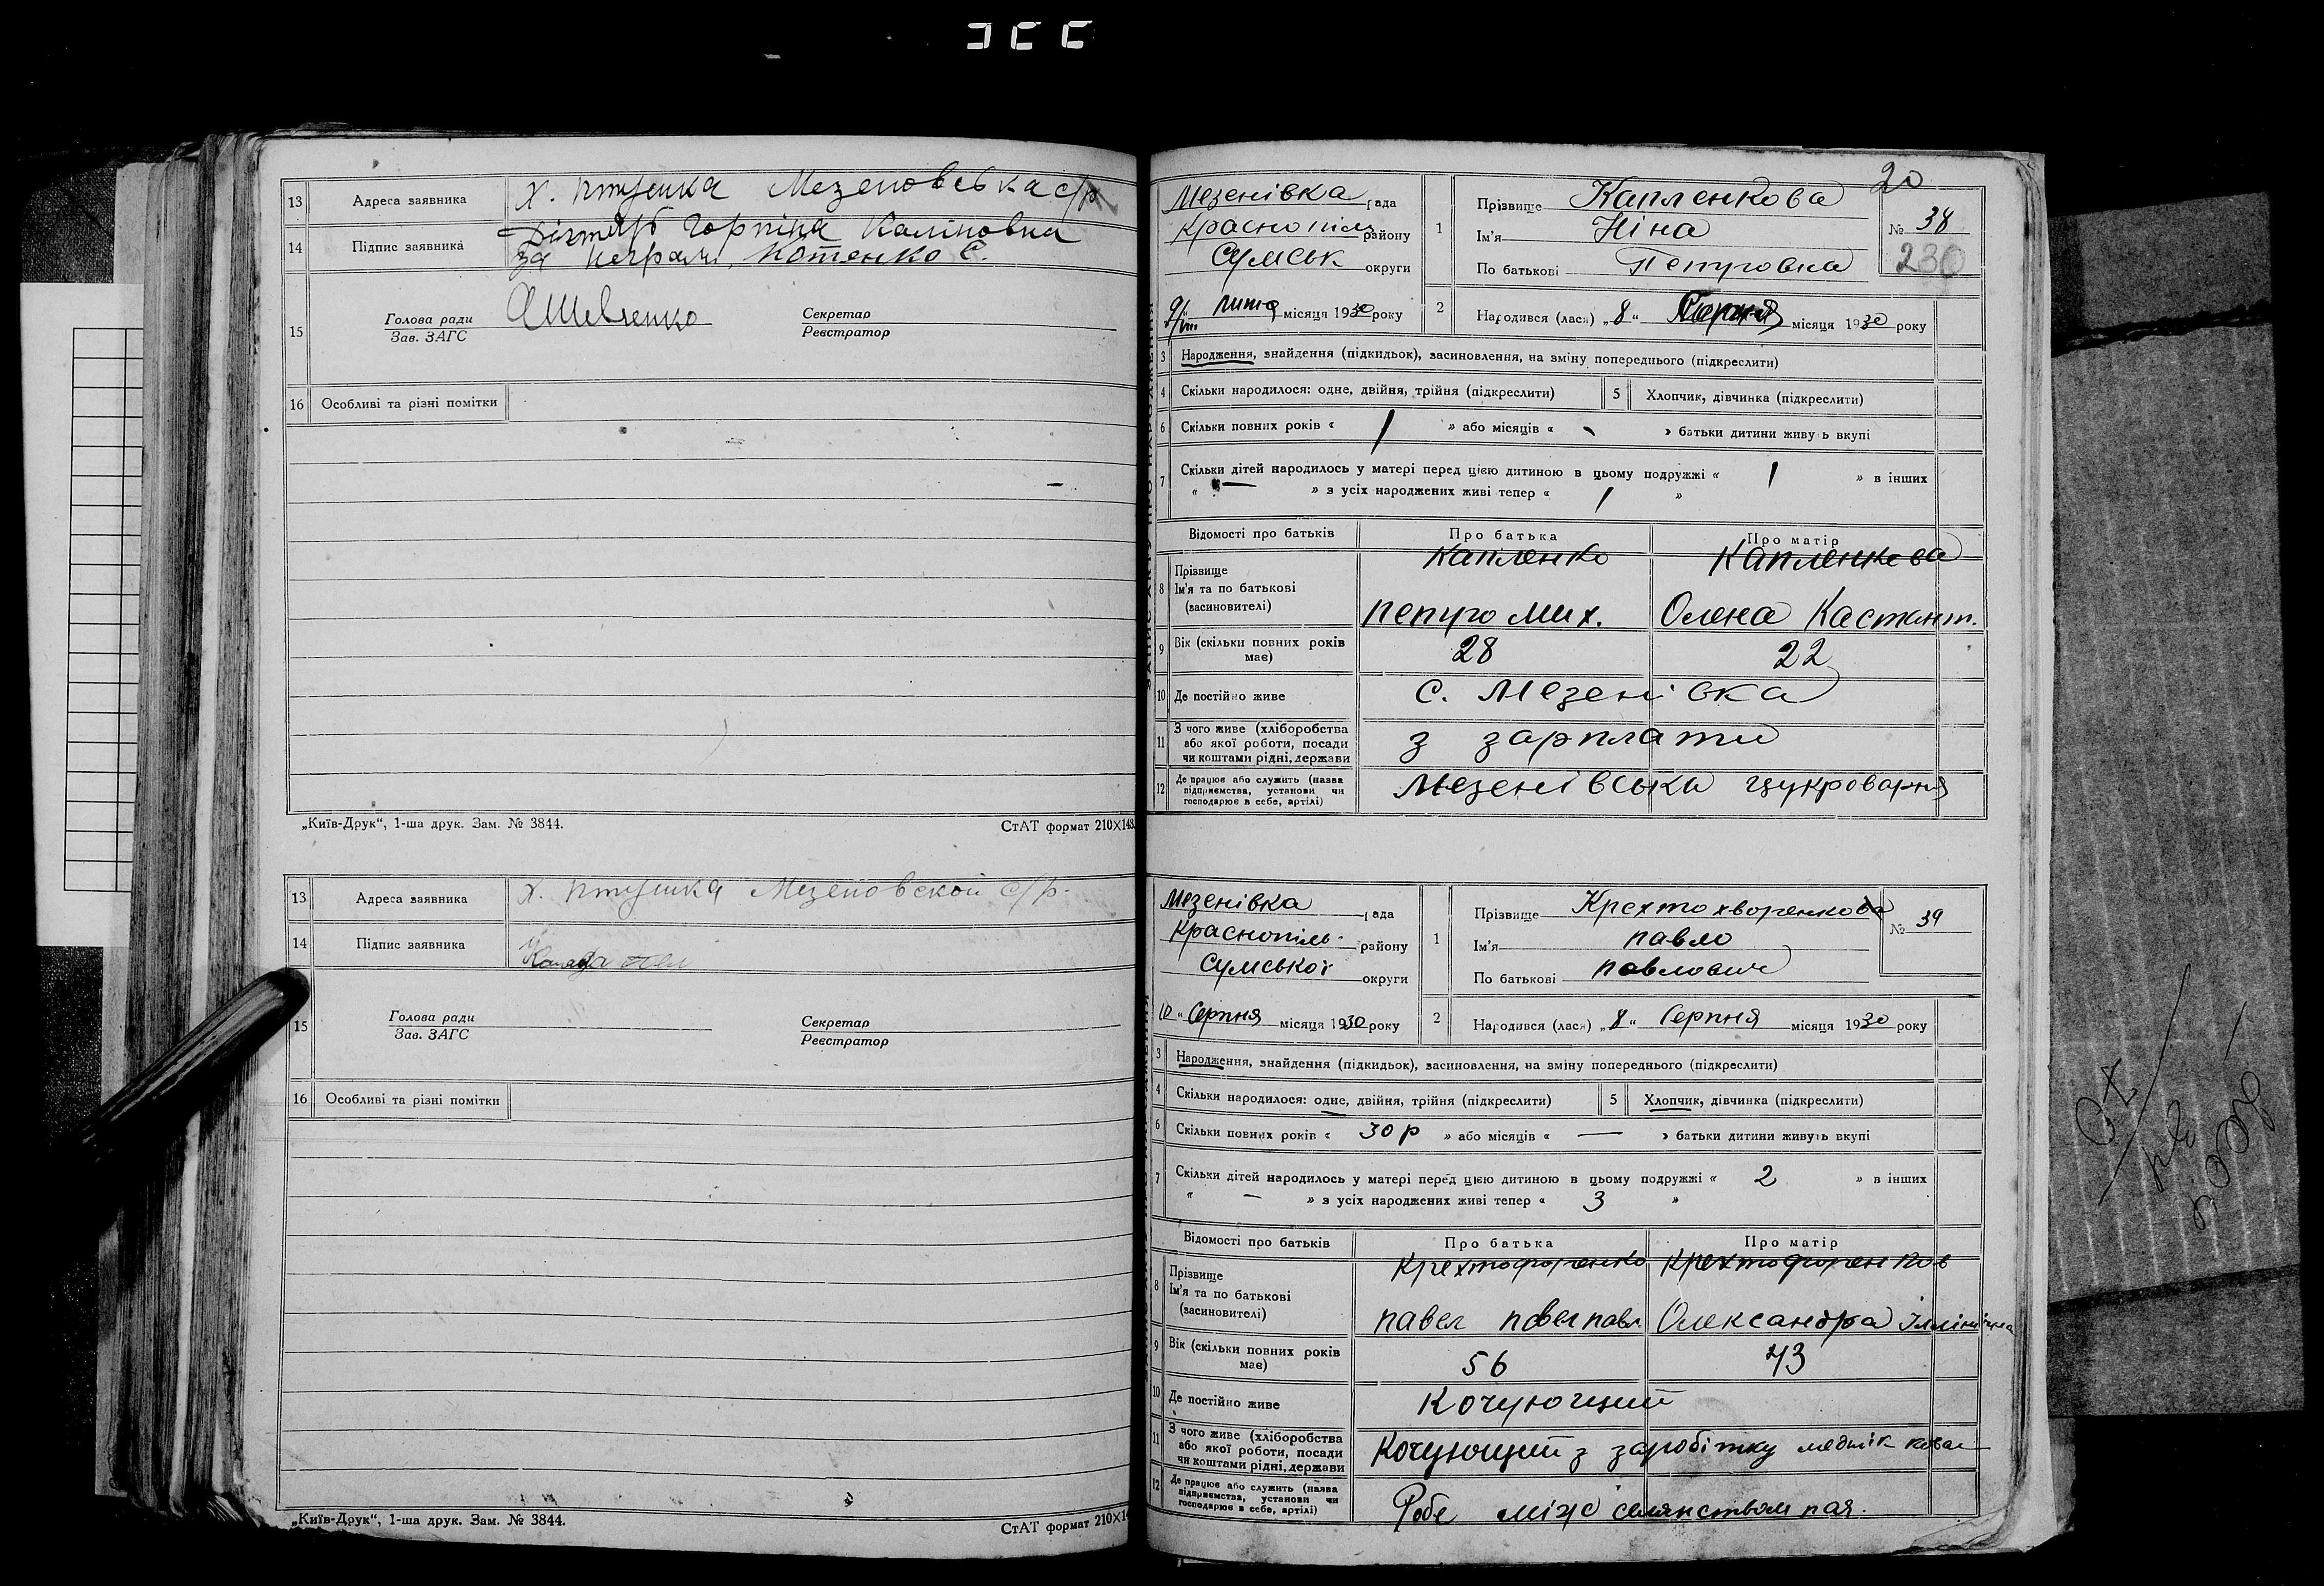 13 Адреса заявника х. Птушка Мезеновська с/р
14 Підпис заявника Горпина Калиновна
за неграм. Котенко С.
15 Голова ради Зав. ЗАГС АШевченко Секретар Реєстратор
16 Особливі та різні помітки
„Київ-Друк“, 1-ша друк. Зам. № 3844. СтАТ формат 210×148.
13 Адреса заявника х. Птушка Мезеновской с/р.
14 Підпис заявника
15 Голова ради Зав. ЗАГС Секретар Реєстратор
16 Особливі та різні помітки
„Київ-Друк“, 1-ша друк. Зам. № 3844. СтАТ формат 210×14
20
Мезенівка рада
Краснопіль району
Сумськ округи
9/VIII місяця 1930 року
1 Прізвище Капленкова
Ім'я Ніна
По батькові Петровна
№ 38
230
2 Народився (лася) „8“ Серпня місяця 1930 року
3 Народження, знайдення (підкидьок), засиновлення, на зміну попереднього (підкреслити)
4 Скільки народилося: одне, двійня, трійня (підкреслити) 5 Хлопчик, дівчинка (підкреслити)
6 Скільки повних років « 1 » або місяців « - » батьки дитини живуть вкупі
7 Скільки дітей народилось у матері перед цією дитиною в цьому подружжі « 1 » в інших
« — » з усіх народжених живі тепер « 1 »
Відомості про батьків Про батька Про матір
8 Прізвище Ім'я та по батькові (засиновителі)
Капленко Капленкова
Петро Мих. Олена Кастант.
9 Вік (скільки повних років має) 28 22
10 Де постійно живе с. Мезенівка
11 З чого живе (хліборобства або якої роботи, посади чи коштами рідні, держави з зарплати
12 Де працює або служить (назва підприємства, установи чи господарює в себе, артілі) Мезенівська цукроварня
Мезенівка рада
Краснопіль- району
Сумської округи
10 „ Серпня місяця 1930 року
1 Прізвище Крехтохворенкова
Ім'я Павло
По батькові Павлович
№ 39
2 Народився (лася) „8“ Серпня місяця 1930 року
3 Народження, знайдення (підкидьок), засиновлення, на зміну попереднього (підкреслити)
4 Скільки народилося: одне, двійня, трійня (підкреслити) 5 Хлопчик, дівчинка (підкреслити)
6 Скільки повних років « 30 р » або місяців « — » батьки дитини живуть вкупі
7 Скільки дітей народилось у матері перед цією дитиною в цьому подружжі « 2 » в інших
« — » з усіх народжених живі тепер « 3 »
Відомості про батьків Про батька Про матір
8 Прізвище Ім'я та по батькові (засиновителі)
Крехтофоренко Крехтофоренков
Павел Павл Олександра
9 Вік (скільки повних років має) 56 43
10 Де постійно живе Кочующий
11 З чого живе (хліборобства або якої роботи, посади чи коштами рідні, держави Кочующий з заробітку меднік коваль
12 Де працює або служить (назва підприємства, установи чи господарює в себе, артілі) Робе між селянством